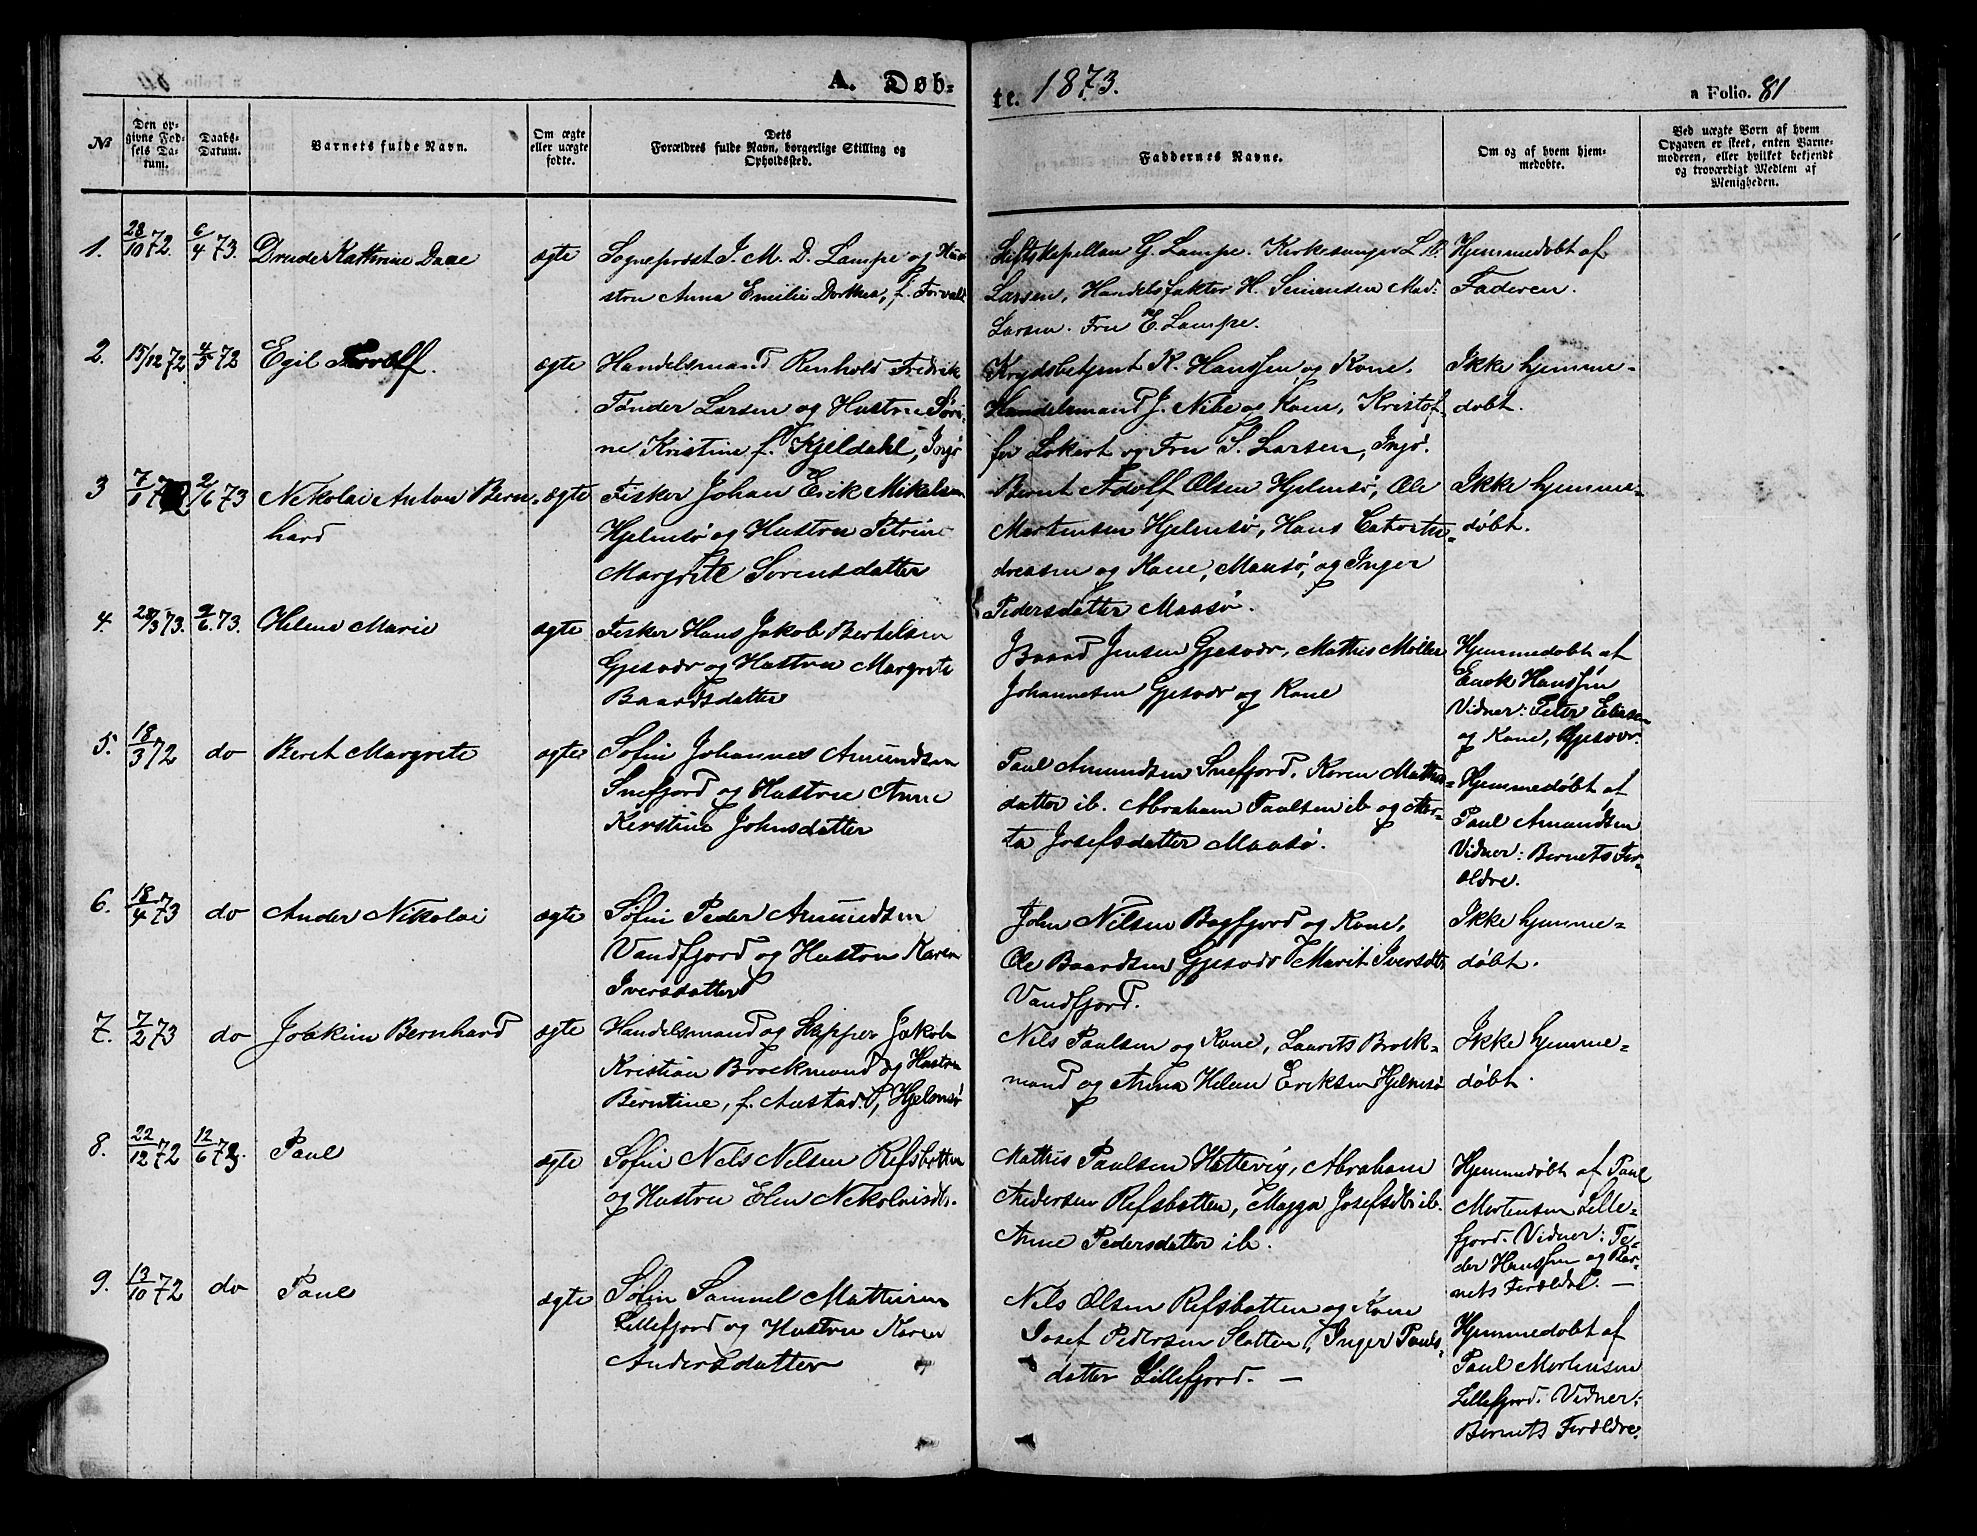 A. Døb-
te. 1873.
a Folio. 81
№
Den op-
givne Fød-
sels Da-
tum.
Daabs-
Datum.
Barnets fulde Navn.
Om ægte
eller uægte
fødte.
Dets
Forældres fulde Navn, borgerlige Stilling og
Opholdssted.
Faddernes Navne.
Om og af hvem hjem-
medøbte.
Ved uægte Børn af hvem
Opgaven er skeet, enten Barne-
moderen, eller hvilket bekjendt
og troværdigt Medlem af
Menigheden.
1. 28/10 72. 6/4 73. Drude Kathrine Daae ægte
Sogneprost J. M. D. Lampe og Hu-
stru Anna Emilie Dorthea, f.
Stiftskapellan G. Lampe. Kirkesanger L.
Larsen, Handelsfaktor H. Simonsen Mad:
Larsen. Fru E. Lampe.
Hjemmedøbt af
Faderen.
2. 15/12 72. 4/5 72 Egil ægte
Handelsmand Renhold Fredrik
Tønder Larsen og Hustru Søri-
ne Kristine f. Kjeldahl, Ingø
Krydsbetjent K. Hanssen og Kone,
Handelsmand J. Nebe og Kone, Kristof-
fer Lokert og Fru S. Larsen, Ingø.
Ikke hjemme-
døbt.
3 7/1 2/6 73 Nikolai Anton Bern-
hard
ægte
Fisker Johan Erik Mikelsen
Hjelmsø og Hustru Petrine
Margrete Sørensdatter
Bernt Adolf Olsen Hjelmsø, Ole
Mortensen Hjelmsø, Hans
dreasen og Kone, Maasø, og Inger
Pedersdatter Maasø.
Ikke hjemme-
døbt.
4. 28/3 73. 2/6 73. Helene Marie ægte
Fisker Hans Jakob Bertelsen
Gjesvær og Hustru Margrete
Baardsdatter
Baard Jensen Gjesvær, Mathis Møller
Johannesen Gjesvær og Kone
Hjemmedøbt af
Hanssen
Vidner: Peter
og Kone, Gjesvær.
5. 18/3 72 do Beret Margrete ægte
Søfin Johannes Amundsen
Snefjord og Hustru Anne
Kerstine Johnsdatter
Paul Amundsen Snefjord. Karen Mathis-
datter ib. Abraham Paulsen ib og Mar-
ta Josefsdatter Maasø.
Hjemmedøbt af
Paul Amundsen
Vidner: Barnets For-
ældre.
6. 18/4 73 do Ander Nikolai ægte
Søfin Peder Amundsen
Vandfjord og Hustru Karen
Iversdatter
John Nilsen Bagfjord og Kone,
Ole Baardsen Gjesvær Marit Iversdtr
Vandfjord.
Ikke hjemme-
døbt.
7. 7/2 73 do Joakim Bernhard ægte
Handelsmand og Skipper Jakob
Kristian Brockmand og Hustru
Berntine, f. Austad, Hjelmsø
Nils Paulsen og Kone, Laurits Brock-
mand og Anna Helene Eriksen Hjelmsø
Ikke hjemme-
døbt.
8. 22/12 72 12/6 73. Paul ægte
Søfin Nels Nelsen Refsbotten
og Hustru Elen Nekolaisdtr.
Mathis Paulsen Hattevig, Abraham
Andersen Refsbotten, Magga Josefsdtr ib.
Anne Pedersdatter ib.
Hjemmedøbt af Paul
Mortensen Lille-
fjord. Vidner: Pe-
der Hanssen og Bar-
nets Forældre. —
9. 13/10 72 do Paul ægte
Søfin Samuel Mathisen
Lillefjord og Hustru Karen
Andersdatter
Nils Olsen Refsbotten og Kone
Josef Pedersen Slotten, Inger Pauls-
datter Lillefjord. —
Hjemmedøbt af
Paul Mortensen
Lillefjord. Vidner:
Barnets Forældre.